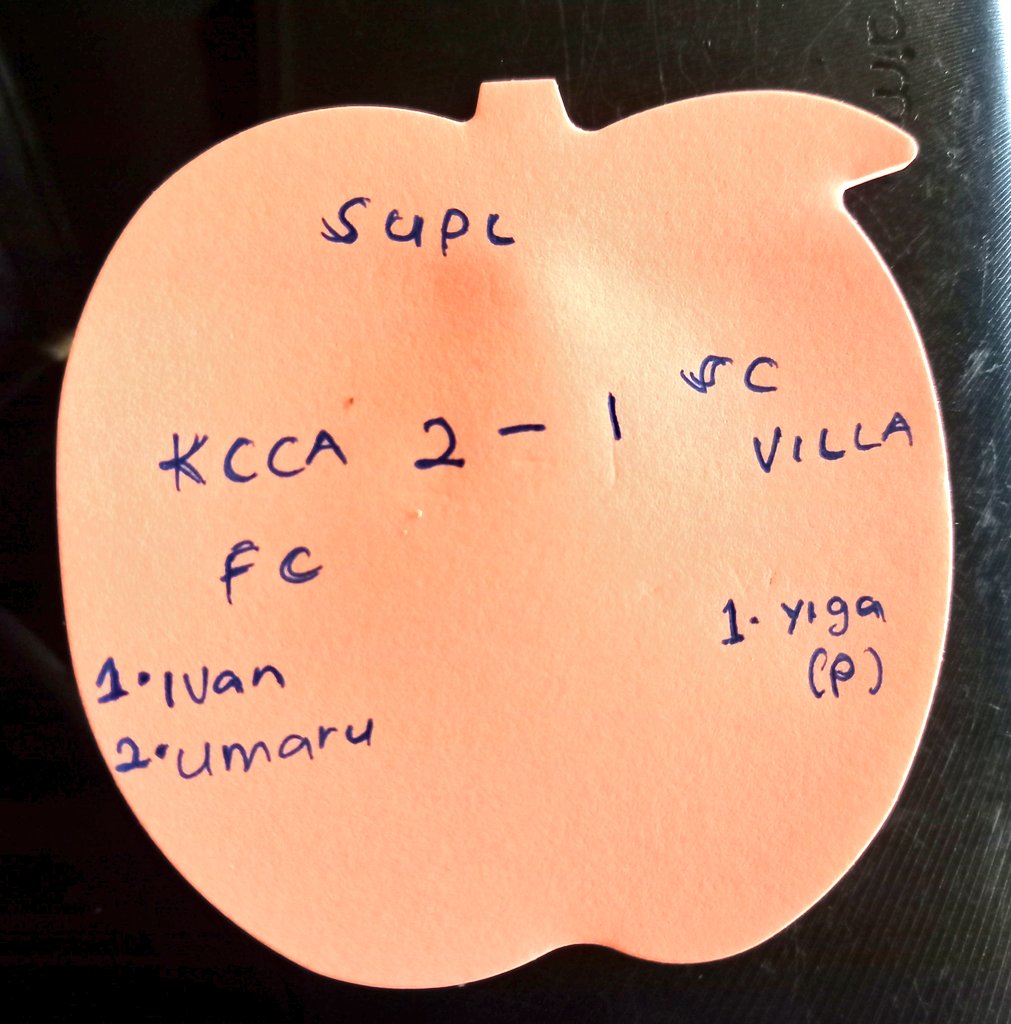 SUPL
KCCA 2 - 1 SC
VILLA
FC
1. Yiga
(P)
1. Ivan
2. Umaru